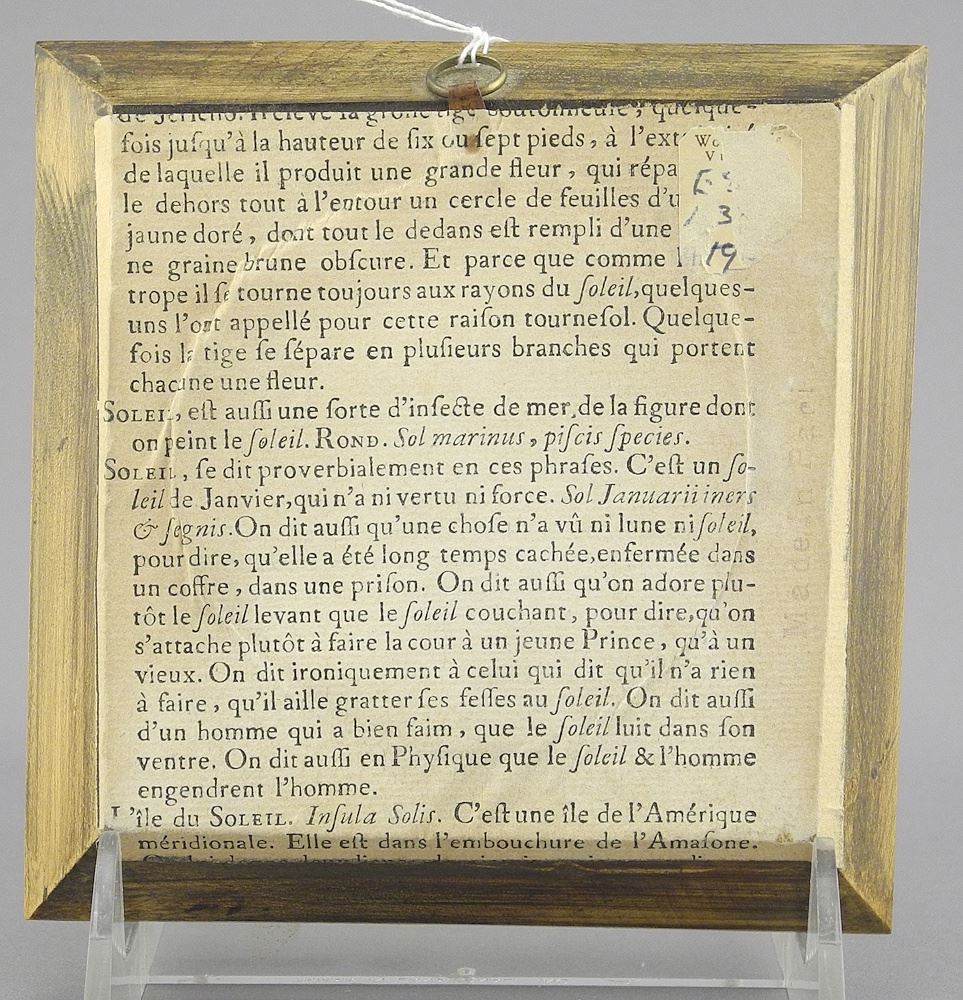 de Jericho. Il éleve sa grosse tige boutonneuse, quelque-
fois juſqu'à la hauteur de ſix ou ſept pieds, à l'ext
de laquelle il produit une grande fleur, qui répa
le dehors tout à l'entour un cercle de feuilles d'u
jaune doré, dont tout le dedans eſt rempli d'une
ne graine brune obſcure. Et parce que comme l'
trope il ſe tourne toujours aux rayons du ſoleil, quelques-
uns l'ont appellé pour cette raiſon tourneſol. Quelque-
fois la tige ſe ſépare en pluſieurs branches qui portent
chacune une fleur.
SOLEIL, eſt auſſi une ſorte d'inſecte de mer, de la figure dont
on peint le ſoleil. ROND. Sol marinus, piſcis ſpecies.
SOLEIL, ſe dit proverbialement en ces phraſes. C'eſt un ſo-
leil de Janvier, qui n'a ni vertu ni force. Sol Januarii iners
& ſegnis. On dit auſſi qu'une choſe n'a vû ni lune ni ſoleil,
pour dire, qu'elle a été long temps cachée, enfermée dans
un coffre, dans une priſon. On dit auſſi qu'on adore plu-
tôt le ſoleil levant que le ſoleil couchant, pour dire, qu'on
s'attache plutôt à faire la cour à un jeune Prince, qu'à un
vieux. On dit ironiquement à celui qui dit qu'il n'a rien
à faire, qu'il aille gratter ſes feſſes au ſoleil. On dit auſſi
d'un homme qui a bien faim, que le ſoleil luit dans ſon
ventre. On dit auſſi en Phyſique que le ſoleil & l'homme
engendrent l'homme.
L'île du SOLEIL. Inſula Solis. C'eſt une île de l'Amérique
méridionale. Elle eſt dans l'embouchure de l'Amaſone.
3
19